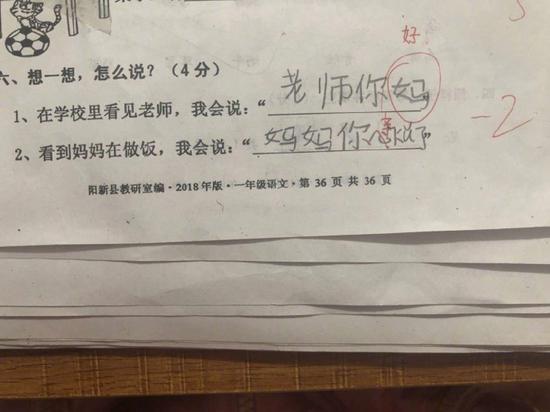 好
六、想一想，怎么说？（4分）
1、在学校里看见老师，我会说：“老师你妈”
-2
2、看到妈妈在做饭，我会说：“妈妈你辛苦了”
阳新县教研室编·2018年版·一年级语文·第 36 页 共 36 页